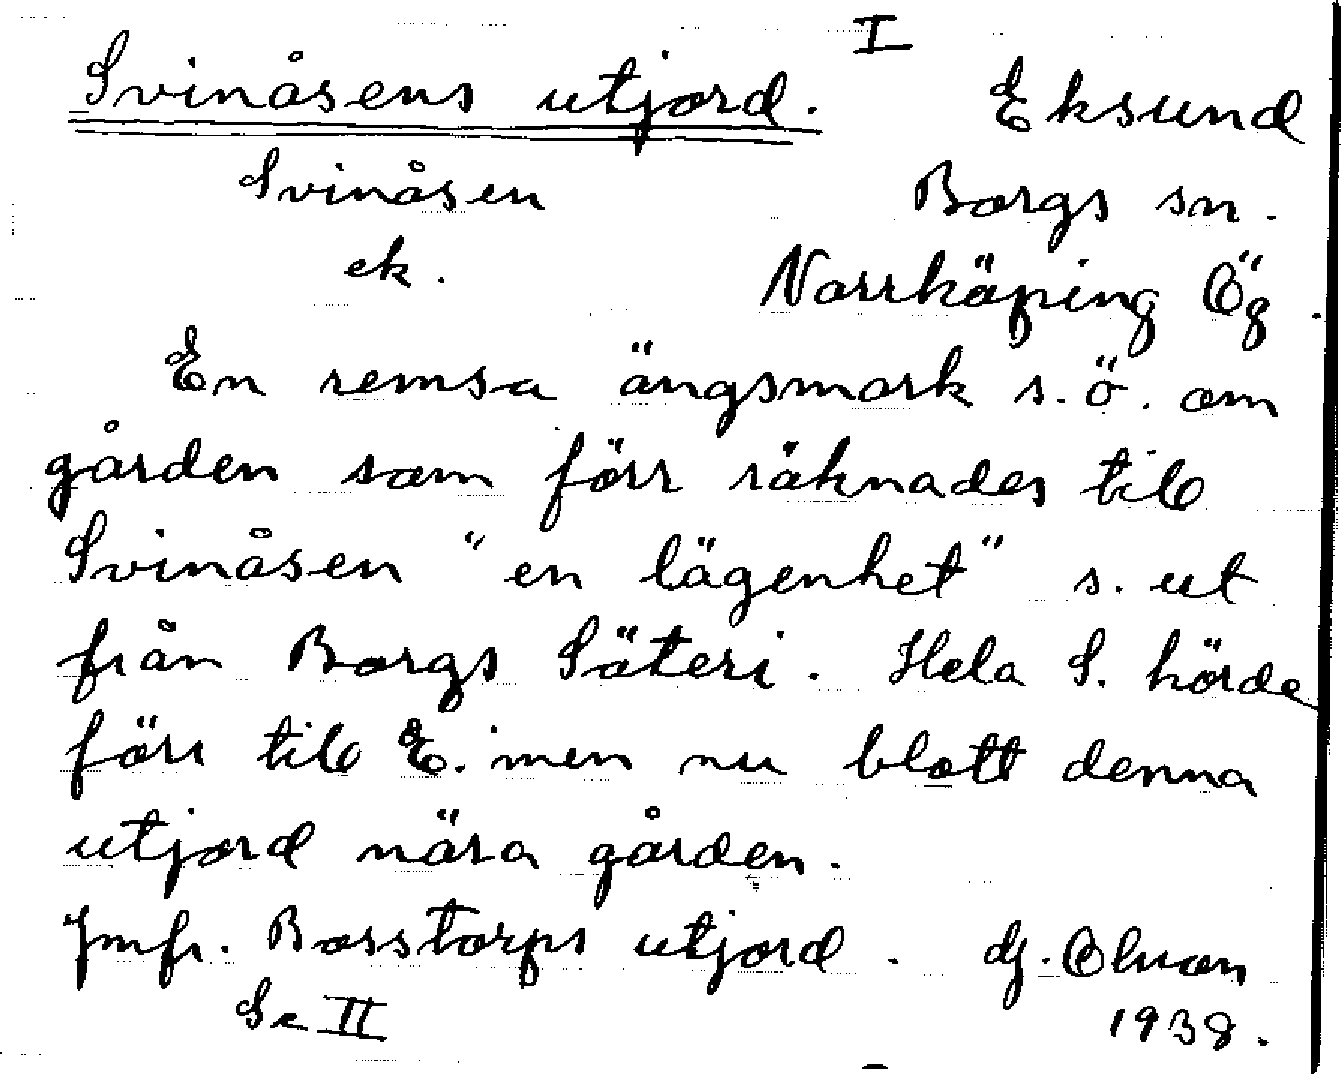 I
Svinåsens utjord. Eksund
Svinåsen Borgs sn.
ek. Norrköping Ög.
En remsa ängsmark s.ö. om
gården som förr räknades till
Svinåsen "en lägenhet" s. ut
från Borgs Säteri. Hela S. hörde
förr till E. men nu blott denna
utjord nära gården.
Jmfr. Borstorps utjord. Olsson
Se II 1938.